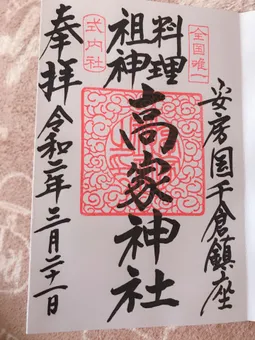 安房国千倉鎮座
全国唯一
料理
祖神
式内社
高家神社
奉拝
令和二年二月二十一日